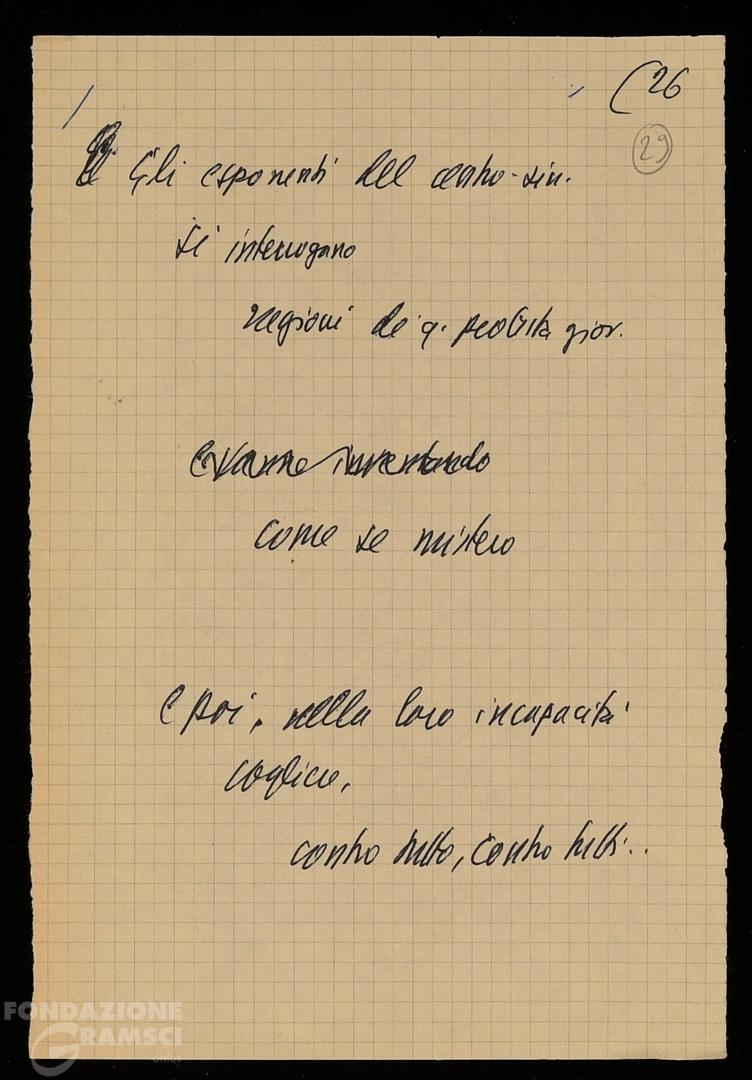 (26
29
Gli esponenti del centro-sin.
si interrogano
ragioni di q. protesta giov.
e vanno inventando
come se mistero
e poi, nella loro incapacità
cogliere,
contro tutto, contro tutti..
FONDAZIONE
GRAMSCI
onlus